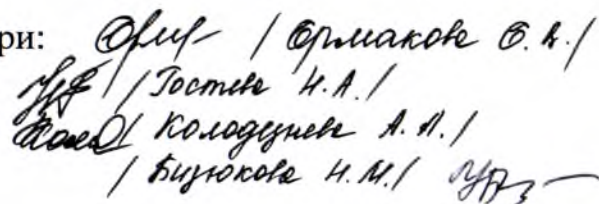 ри: / Ермакова Е. А. /
/ Гостева Н. А. /
/ Колодезнева А. П. /
/ Бизюкова Н. М. /